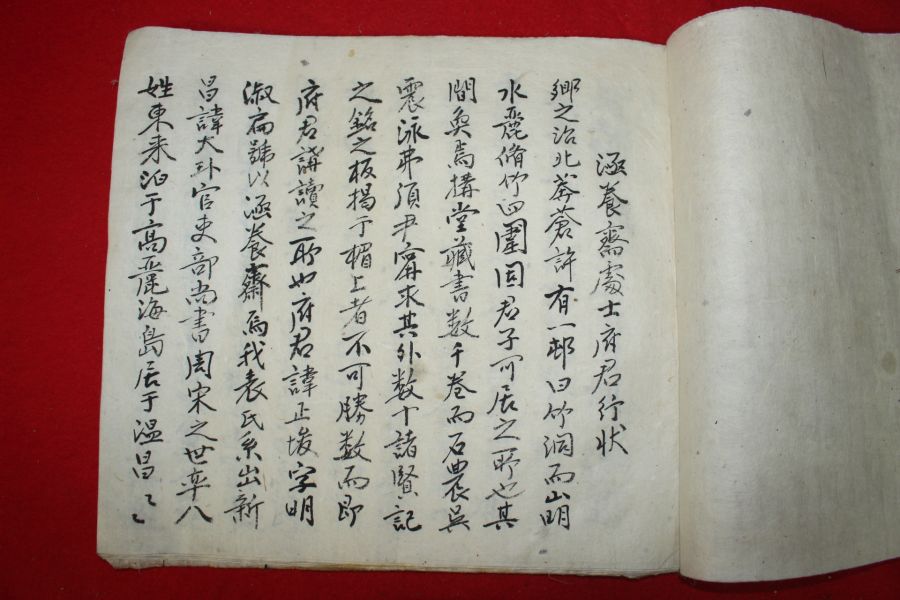 涵養齋處士府君行狀
鄉之治北莽蒼許有一邨曰竹洞而山明
水麗脩竹四圍固君子可居之所也其
間奐焉構堂藏書数千卷而石農吳
震泳弗須尹甯求其外数十諸賢記
之銘之板揭于楣上者不可勝数而即
府君講讀之所也府君諱正埈字明
淑扁號以涵養齋焉我袁氏系出新
昌諱大玤官吏部尚書周宋之世率八
姓東来泊于高麗海島居于溫昌〻〻